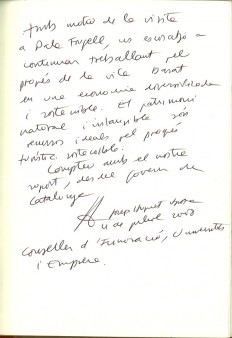 Amb motiu de la visita
a Palafrugell, us encoratjo a
continuar treballant pel
progrés de la vila basat
en una economia diversificada
i sostenible. El patrimoni
natural i intangible són
recursos ideals pel progrés
turístic sostenible.
Compteu amb el nostre
suport, des del govern de
Catalunya
Josep Huguet
4 de juliol 2008
Conseller d'Innovació, Universitats
i Empresa.